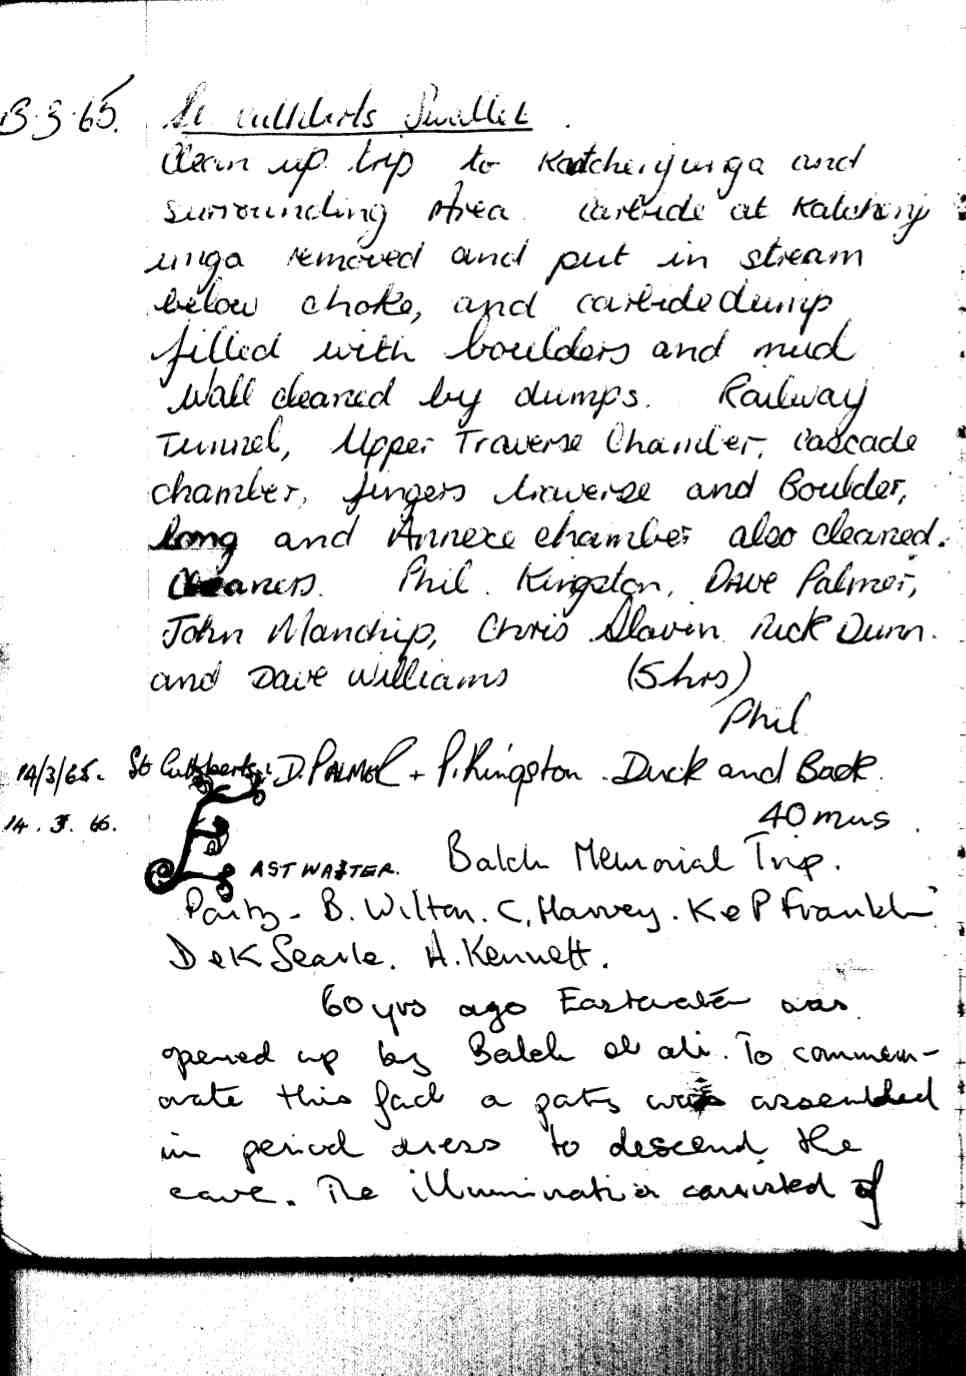 13.3.65. St Cuthberts Swallet.
Clean up trip to Katchenjunga and
surrounding Area. Carbide at Katchenj
unga removed and put in stream
below choke, and carbide dump
filled with boulders and mud
Wall cleaned by dumps. Railway
Tunnel, Upper Traverse Chamber, Cascade
chamber, fingers traverse and Boulder,
long and Annexe chamber also cleaned.
Cleaners. Phil. Kingston, Dave Palmer,
John Manchip, Chris Slavin Rick Dunn.
and Dave Williams (5hrs)
Phil
14/3/65. St Cuthberts: D. PALMER + P. Kingston. Duck and Back.
40 mns.
14.3.65. EASTWATER. Balch Memorial Trip.
Party - B. Wilton. C. Harvey. K & P Franklin
D & K Searle. A. Kennett.
60 yrs ago Eastwater was
opened up by Balch et al. To commem-
orate this fact a party was assembled
in period dress to descend the
cave. The illumination consisted of